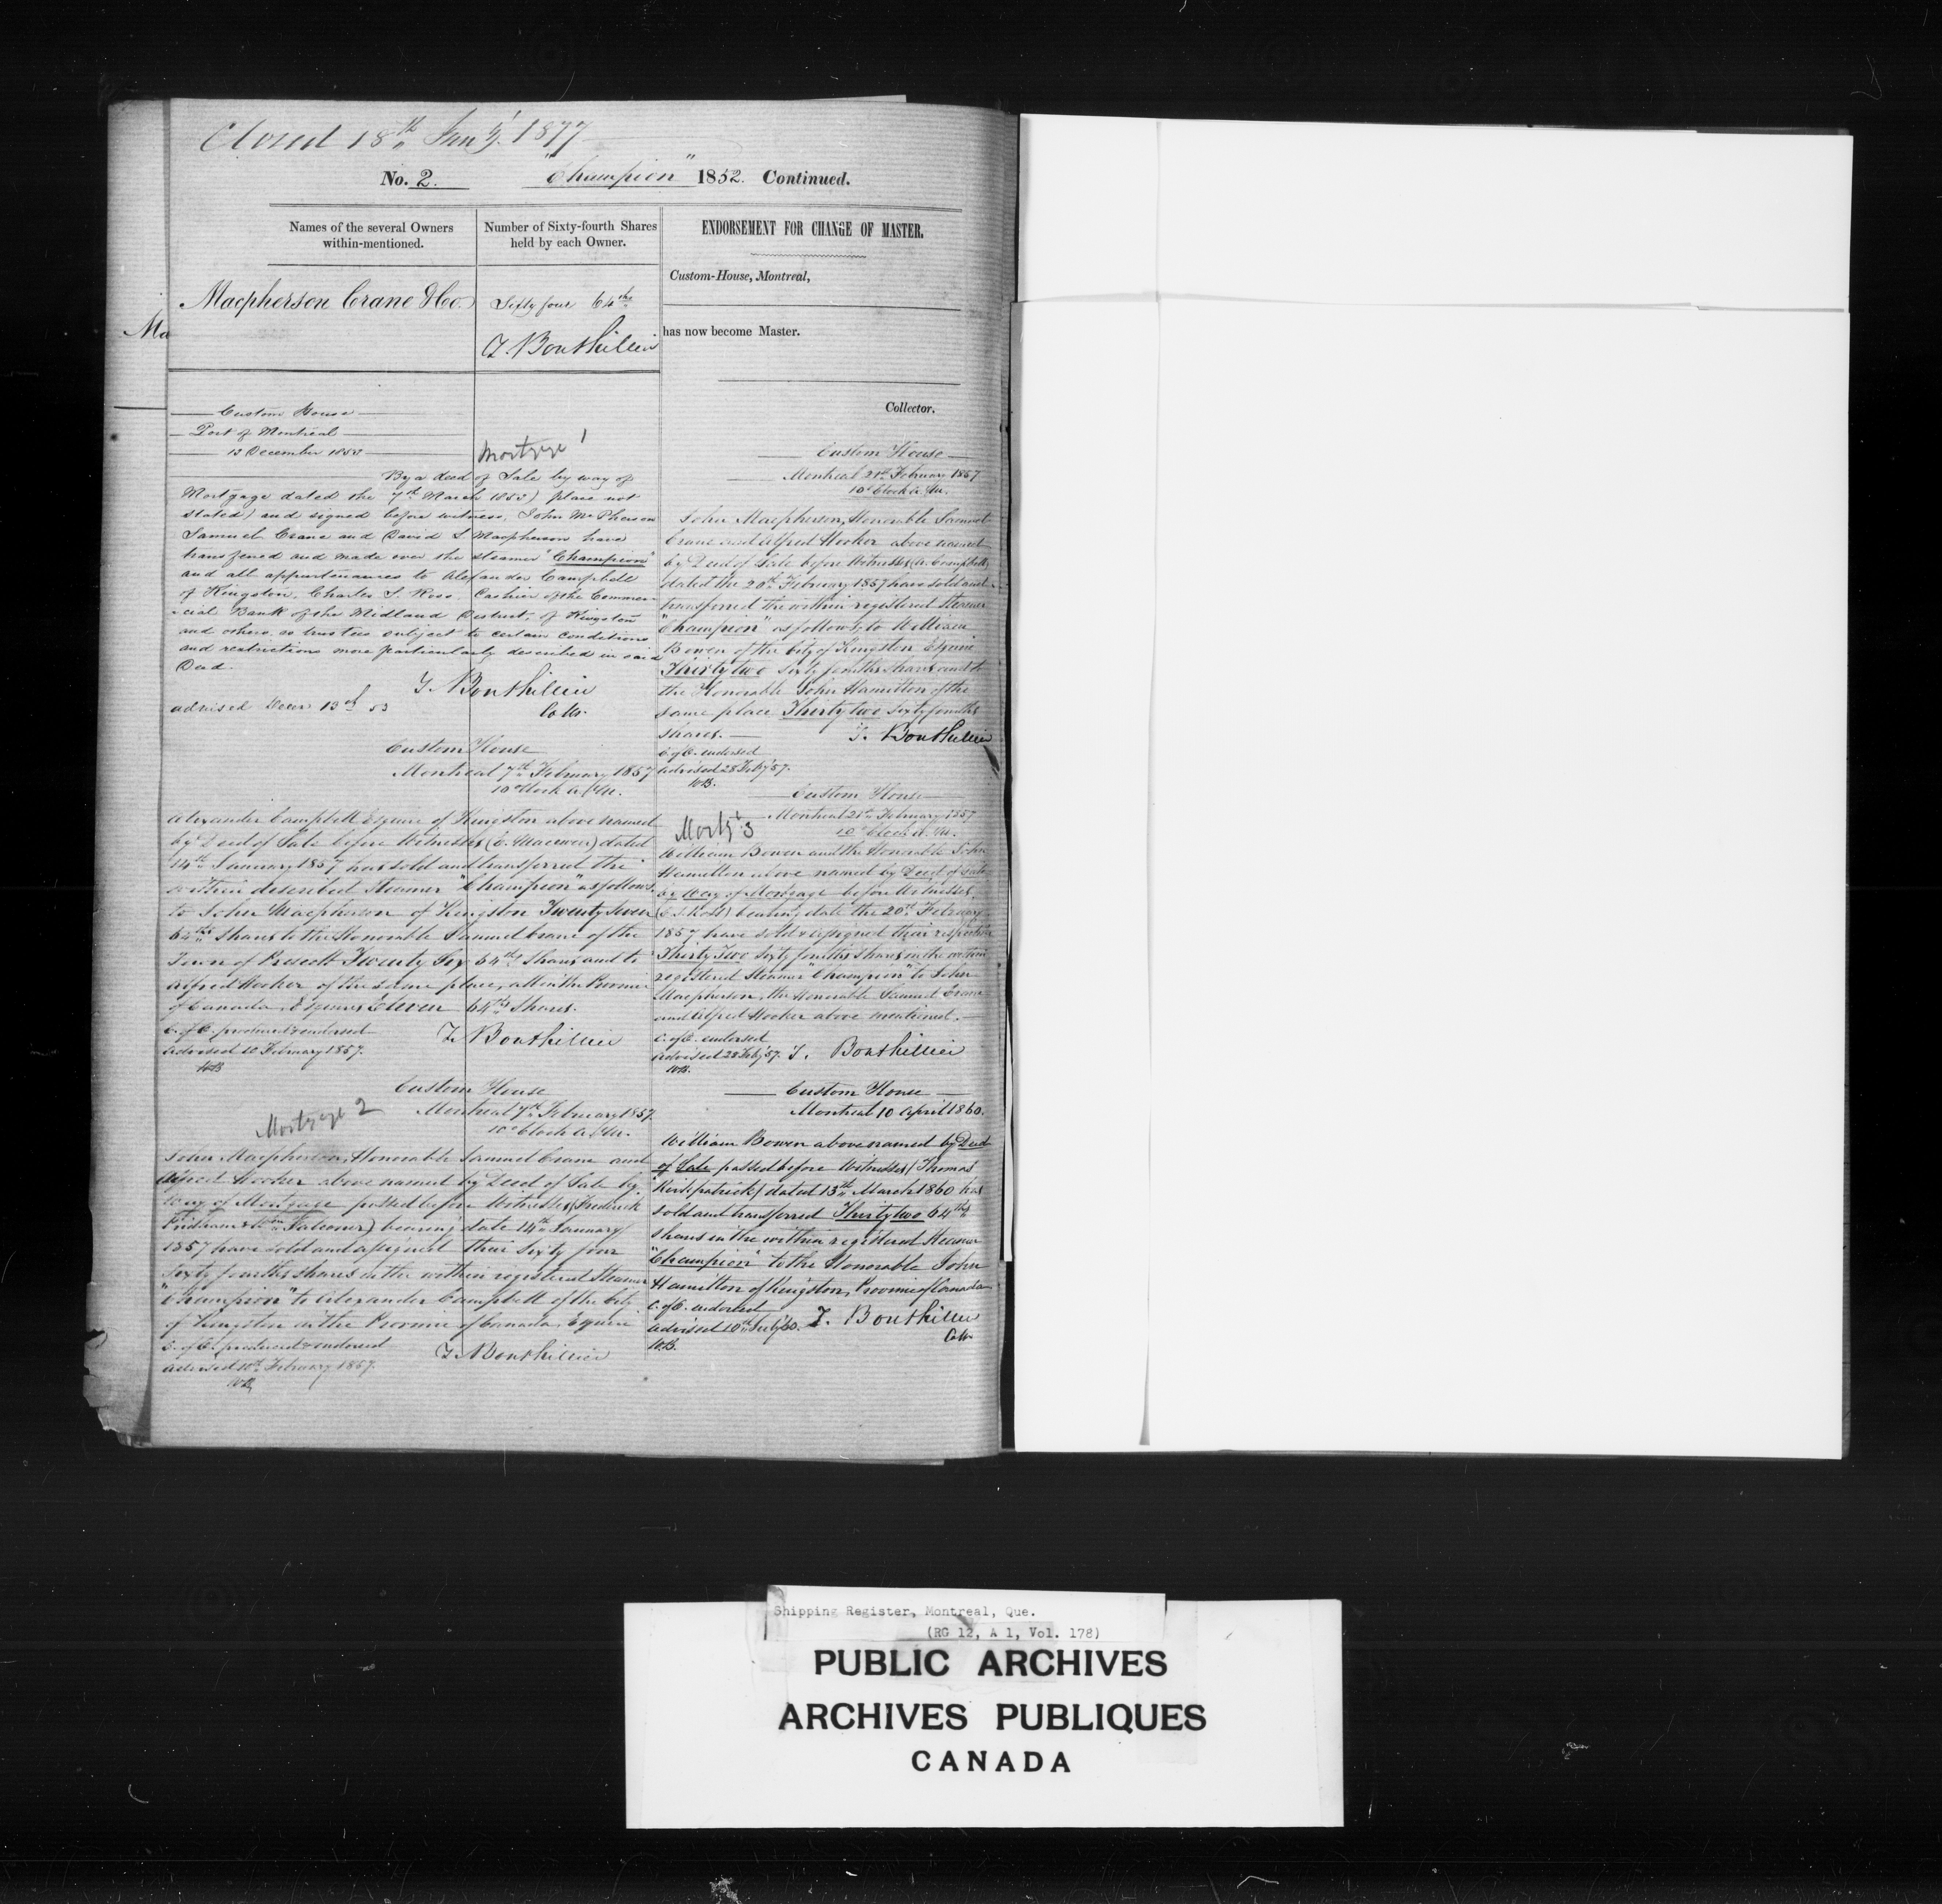 Closed 18th Jany. 1877
No. 2. "Champion" 1852. Continued.
Names of the several Owners
within-mentioned.
Number of Sixty-fourth Shares
held by each Owner.
Macpherson Crane & Co.
Sixty four 64ths
T. Bouthillier
Ma
Custom House
Port of Montreal
13 December 1853
Mortgage 1
By a deed of Sale by way of
Mortgage dated the 7th March 1853) place not
stated) and signed before witness, John McPherson
Samuel Crane and David S Macpherson have
transfered and made over the steamer "Champion"
and all appurtenances to Alexander Campbell
of Kingston, Charles S. Ross, Cashier of the Commer-
cial Bank of the Midland District, of Kingston
and others as trustees subject to certain conditions
and restrictions more particularly described in said
Deed.
T. Bouthillier
Collr.
advised Decer 13th 53
Custom House
Montreal 7th February 1857
10 o'Clock A.M.
Alexander Campbell Esquire of Kingston above named
by Deed of Sale before Witnesses (E. Macewen) dated
14th January 1857 has sold and transferred the
within described Steamer "Champion" as follows.
to John Macpherson of Kingston Twenty Seven
64ths Shares to the Honorable Samuel Crane of the
Town of Prescott Twenty Six 64th Shares and to
Alfred Hooker of the same place, all in the Province
of Canada, Esquires Eleven 64ths Shares.
C. of O. produced & endorsed
advised 10 February 1857.
WB
T. Bouthillier
Custom House
Montreal 7th February 1857.
10 o'Clock A.M.
Mortgage 2
John Macpherson, Honorable Samuel Crane and
Alfred Hooker above named by Deed of Sale by
way of Mortgage passed before Witnesses (Frederick
Pridham & Wm Falconer) bearing date 14th January
1857 have sold and assigned their Sixty four
Sixty fourths shares in the within registered Steamer
"Champion" to Alexander Campbell of the City
of Kingston in the Province of Canada, Esquire
C. of O. produced & endorsed
advised 10th February 1857.
WB
T. Bouthillier
ENDORSEMENT FOR CHANGE OF MASTER.
Custom-House, Montreal,
has now become Master.
Collector.
Custom House
Montreal 21st February 1857
10 o'Clock A.M.
John Macpherson, Honorable Samuel
Crane and Alfred Hooker above named
by Deed of Sale before Witnesses (A. Campbell)
dated the 20th February 1857 have sold and
transferred the within registered Steamer
"Champion" as follows, to William
Bowen of the City of Kingston Esquire
Thirty two Sixty fourths shares and to
the Honorable John Hamilton of the
same place Thirty two sixty fourths
Shares.
T. Bouthillier
C. of O. endorsed
advised 28 Feby '57.
WB.
Custom House
Montreal 21st February 1857
10 o'Clock A.M.
Mortge 3
William Bowen and the Honorable John
Hamilton above named by Deed of Sale
by Way of Mortgage before Witnesses
(C. S. Ross) bearing date the 20th February
1857 have sold & assigned their respective
Thirty Two Sixty fourths shares in the within
registered Steamer "Champion" to John
Macpherson, the Honorable Samuel Crane
and Alfred Hooker above mentioned.
C. of O. endorsed
advised 28 Feby '57. T. Bouthillier
WB.
Custom House
Montreal 10 April 1860.
William Bowen above named by Deed
of Sale passed before Witnesses (Thomas
Kirkpatrick) dated 13th March 1860 has
sold and transferred Thirty two 64ths
shares in the within registered Steamer
"Champion" to the Honorable John
Hamilton of Kingston, Province of Canada
C. of O. endorsed
T. Bouthillier
Collr.
WB.
Shipping Register, Montreal, Que.
(RG 12, A 1, Vol. 178)
PUBLIC ARCHIVES
ARCHIVES PUBLIQUES
CANADA